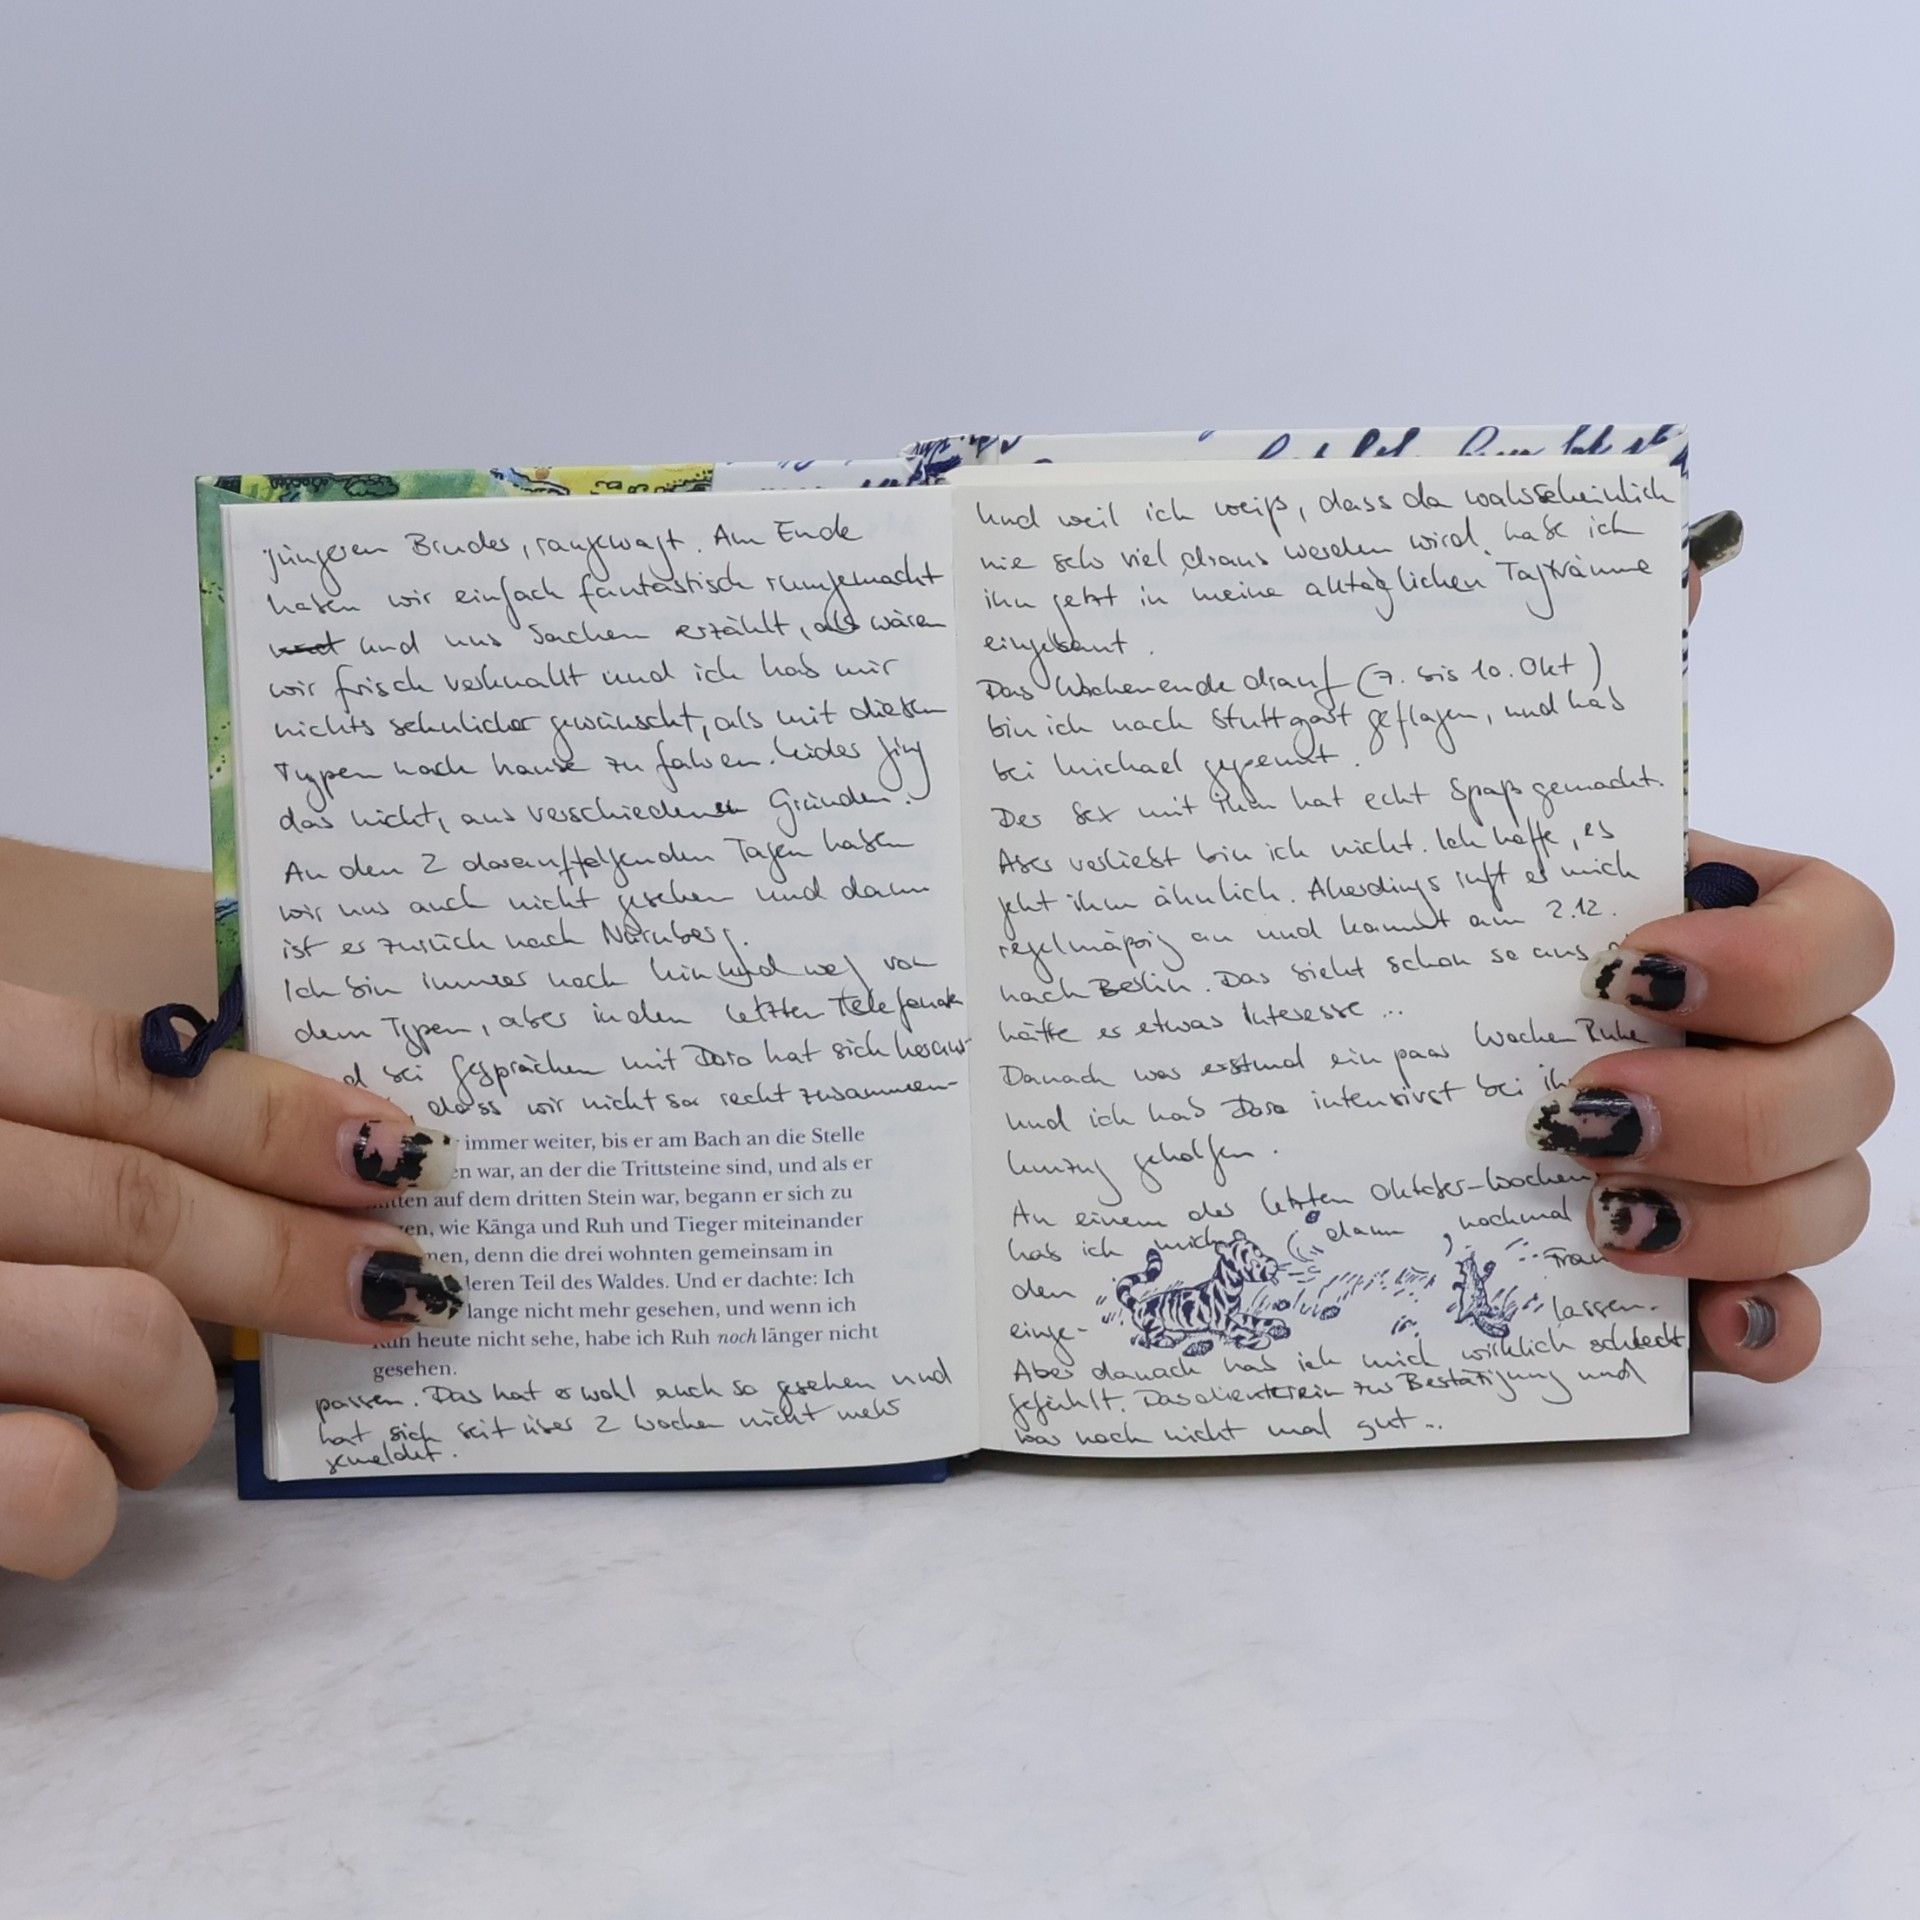 jüngeren Bruder, rangewagt. Am Ende
haben wir einfach fantastisch rumgemacht
und und uns Sachen erzählt, als wären
wir frisch verknallt und ich hab mir
nichts sehnlicher gewünscht, als mit diesem
Typen nach hause zu fahren. Leider ging
das nicht, aus verschiedenen Gründen.
An den 2 darauffolgenden Tagen haben
wir uns auch nicht gesehen und dann
ist er zurück nach Nürnberg.
Ich bin immer noch hin und weg von
dem Typen, aber in den letzten Telefonate
d bei Gesprächen mit Dora hat sich heraus-
, dass wir nicht so recht zusammen-
immer weiter, bis er am Bach an die Stelle
en war, an der die Trittsteine sind, und als er
tten auf dem dritten Stein war, begann er sich zu
en, wie Känga und Ruh und Tieger miteinander
men, denn die drei wohnten gemeinsam in
deren Teil des Waldes. Und er dachte: Ich
lange nicht mehr gesehen, und wenn ich
Ruh heute nicht sehe, habe ich Ruh noch länger nicht
gesehen.
passen. Das hat er wohl auch so gesehen und
hat sich seit über 2 Wochen nicht mehr
gemeldet.
Und weil ich weiß, dass da wahrscheinlich
nie sehr viel draus werden wird, habe ich
ihn jetzt in meine alltäglichen Tagträume
eingebaut.
Das Wochenende drauf (7. bis 10. Okt)
bin ich nach Stuttgart geflogen, und hab
bei Michael gepennt.
Der Sex mit ihm hat echt Spaß gemacht.
Aber verliebt bin ich nicht. Ich hoffe, es
geht ihm ähnlich. Allerdings ruft er mich
regelmäßig an und kommt am 2.12.
nach Berlin. Das sieht schon so aus
hätte er etwas Interesse ...
Danach war erstmal ein paar Wochen Ruhe
und ich hab Dora intensivst bei ih
Umzug geholfen.
An einem der letzten Oktober-Wochen
hab ich mich dann nochmal
den Fran
einge- lassen.
Aber danach hab ich mich wirklich schlecht
gefühlt. Das diente rein zur Bestätigung und
war noch nicht mal gut...